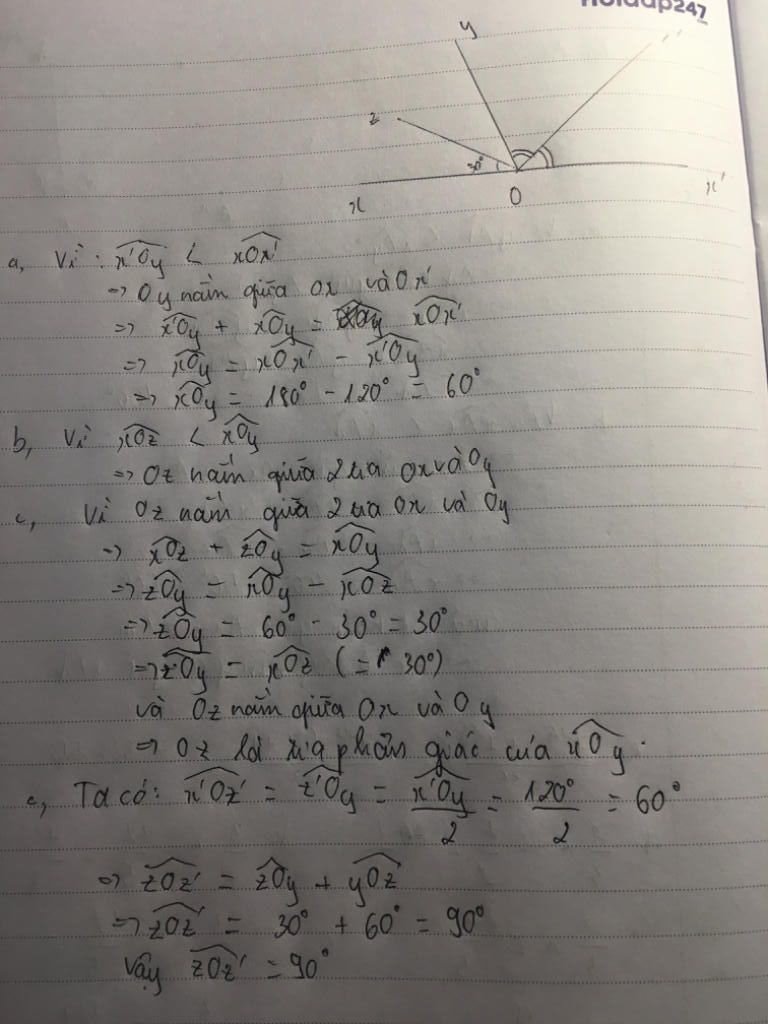 Hoidap247
y
z
30°
x
O
x'
a, Vì : x'Oy < xOx'
=> Oy nằm giữa Ox và Ox'
=> x'Oy + xOy = xOx'
=> xOy = xOx' - x'Oy
=> xOy = 180° - 120° = 60°
b, Vì xOz < xOy
=> Oz nằm giữa 2 tia Ox và Oy
c, Vì Oz nằm giữa 2 tia Ox và Oy
=> xOz + zOy = xOy
=> zOy = xOy - xOz
=> zOy = 60° - 30° = 30°
=> zOy = xOz (= 30°)
và Oz nằm giữa Ox và Oy
=> Oz là tia phân giác của xOy.
c, Ta có: x'Oz' = z'Oy = x'Oy/2 = 120°/2 = 60°
=> zOz' = zOy + yOz'
=> zOz' = 30° + 60° = 90°
Vậy zOz' = 90°